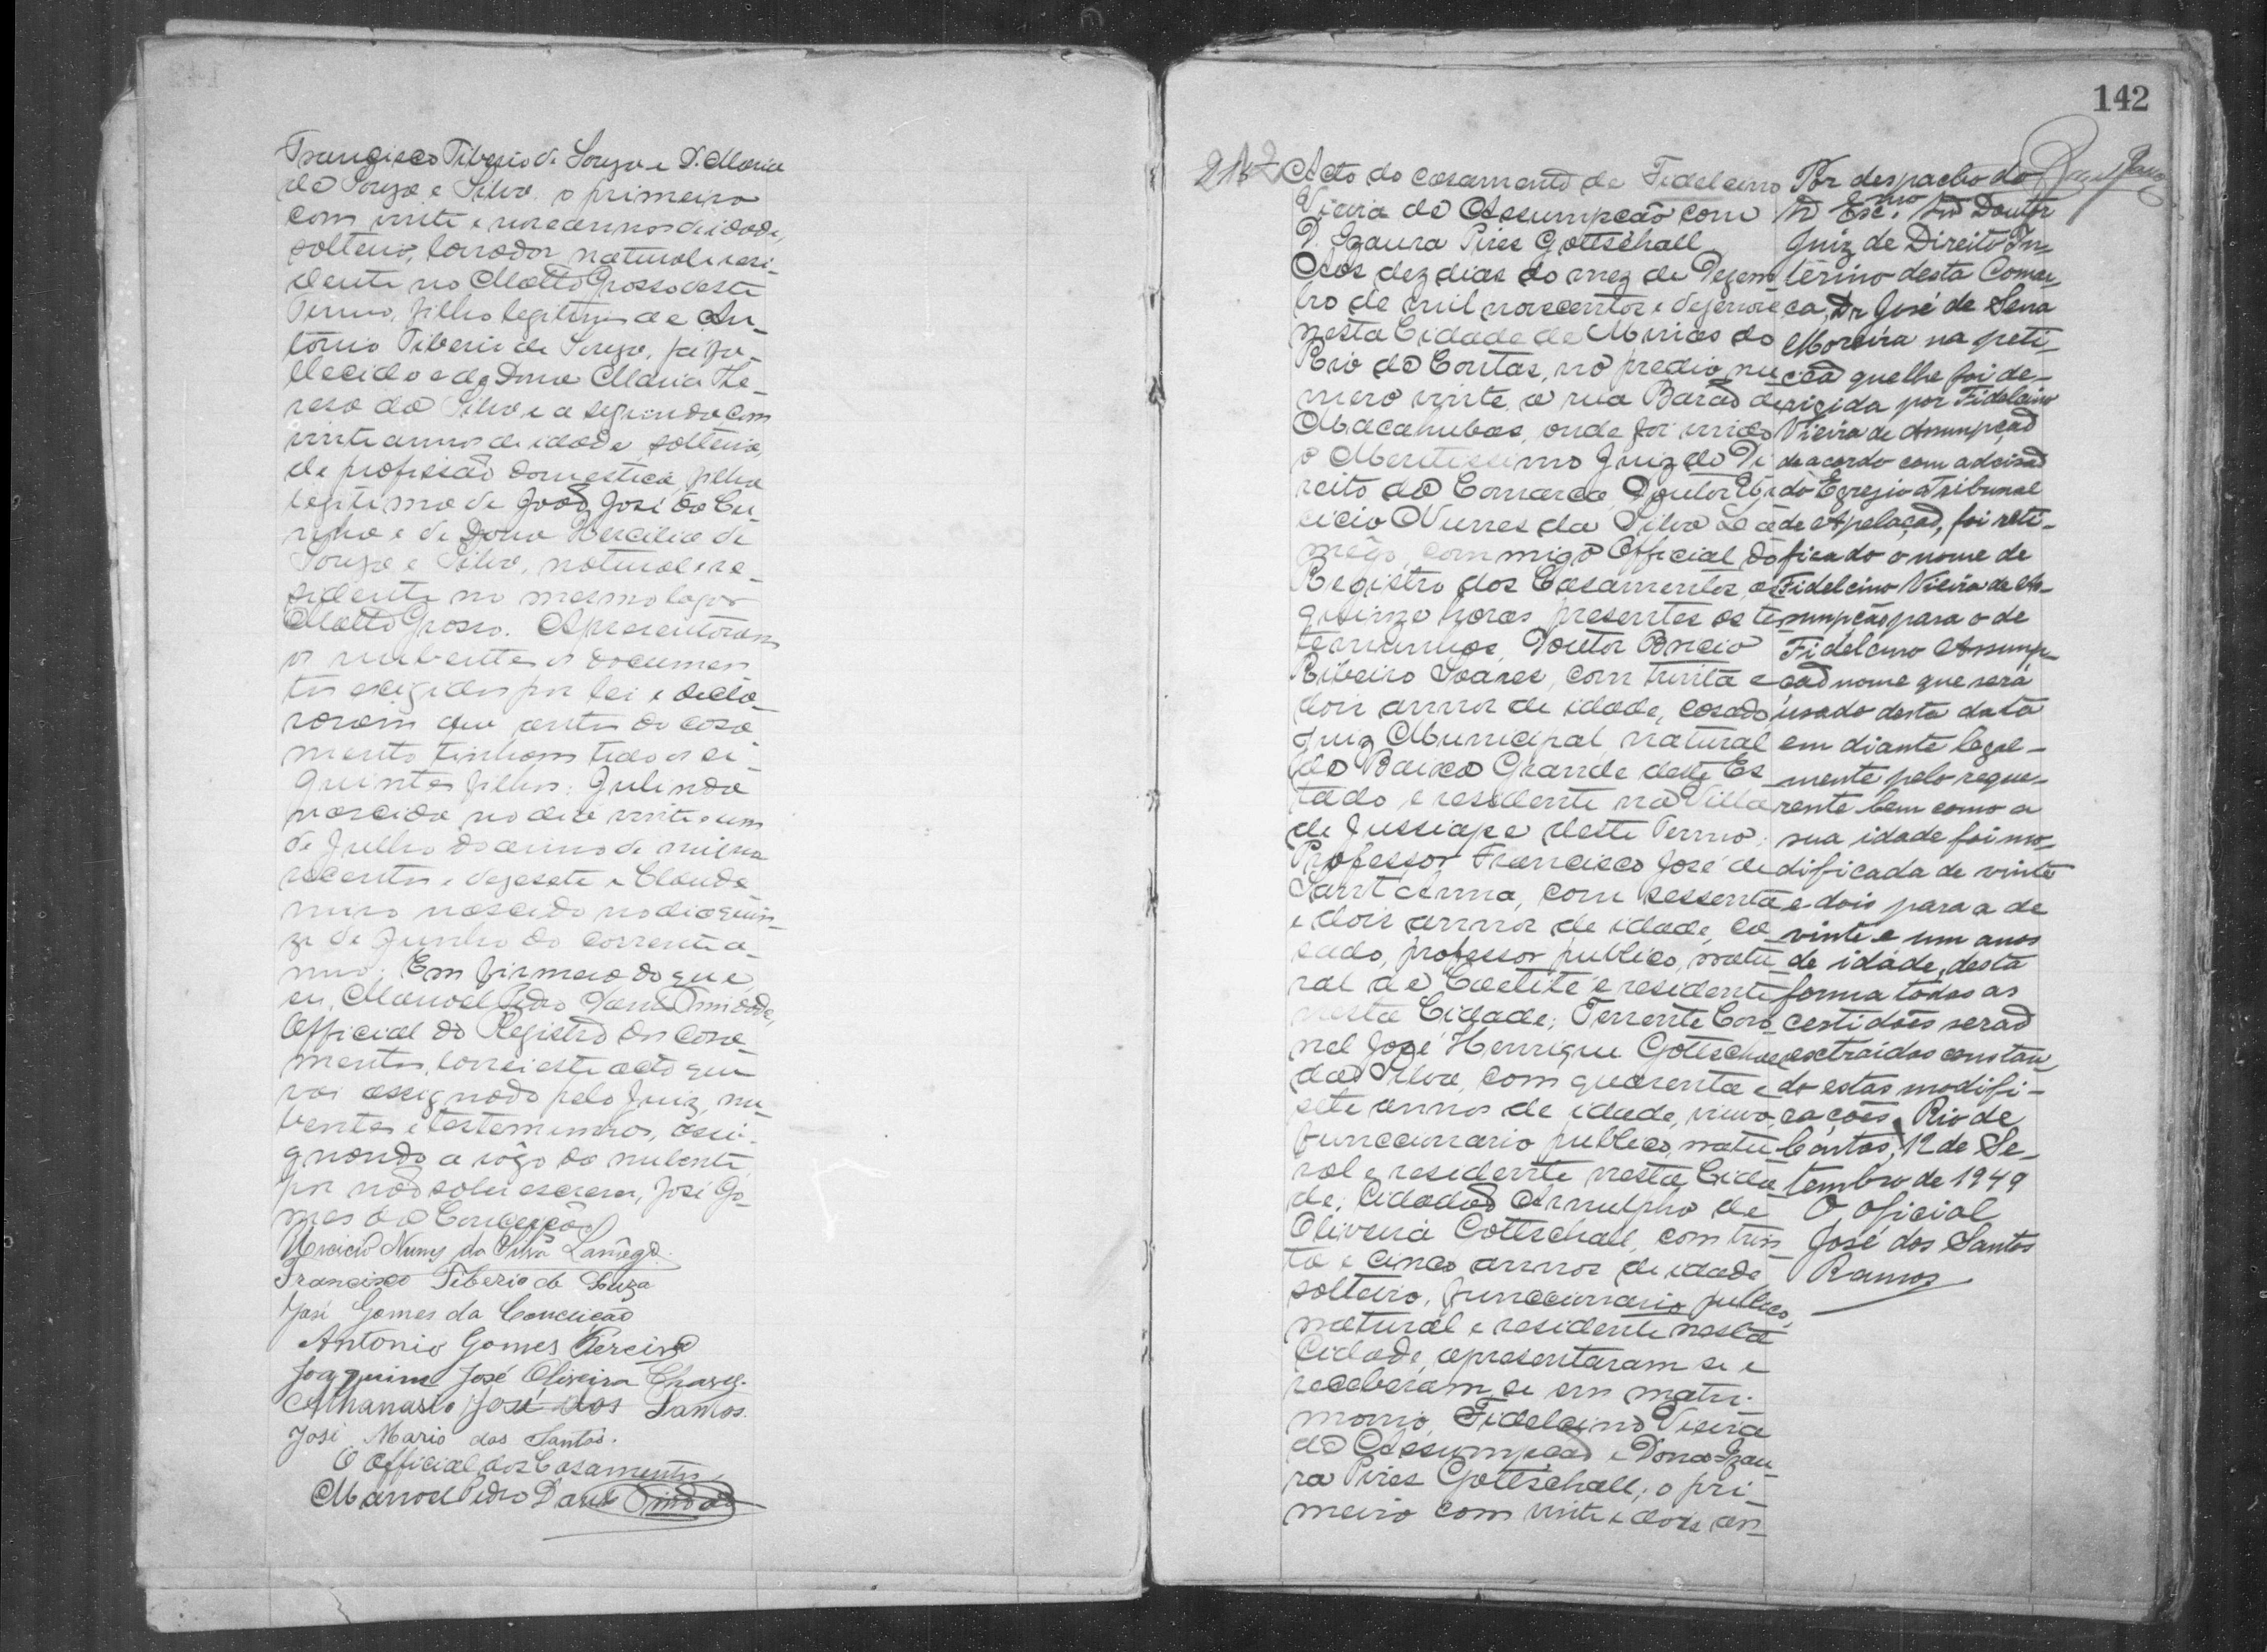 Francisco Tiberio de Souza e D. Maria
de Souza e Silva, o primeiro
com vinte e nove annos de idade,
solteiro, lavrador, natural e resi-
dente no Matto Grosso deste
Termo, filho legitimo de An-
tonio Tiberio de Souza, já fa-
llecido e de Dona Maria The-
reza da Silva e a segunda com
vinte annos de idade, solteira,
de profissão domestica, filha
legitima de João José da
e de Dona Hercilia de
Souza e Silva, natural e re-
sidente no mesmo lugar
Matto Grosso. Apresentaram
os nubentes os documen
tos exigidos por lei e decla-
raram que antes do casa
mento tinham tido os se-
guintes filhos: Julinda
nascida no dia vinte e um
de Julho do anno de mil no
vecentos e dezesete e Claudo
miro nascido no dia quin-
ze de Junho do corrente a-
nno. Em firmeza do que,
eu, Manoel Pedro Dantas Trindade,
Official do Registro dos Casa-
mentos, lavrei este acto que
vai assignado pelo Juiz, nu-
bentes e testemunhas, assi-
gnando a rôgo da nubente,
por não saber escrever, José Go-
mes da Conceição
Urcicio Nunes da Silva Lamêgo.
Francisco Tiberio de Souza
José Gomes da Conceição
Antonio Gomes Pereira
Joaquim José Oliveira Chaves.
Athanasio José dos Santos.
José Mario dos Santos.
O Official dos Casamentos,
Manoel Pedro Dantas Trindade
142
Acto do casamento de Fidelcino
Vieira de Assumpção com
D. Izaura Pires Gottschall
Aos dez dias do mez de Dezem
bro de mil novecentos e dezenove
nesta Cidade de Minas do
Rio de Contas, no predio nu
mero vinte, a rua Barão de
Macahubas, onde foi vindo
o Meritissimo Juiz de Di
reito da Comarca, Doutor Ur
cicio Nunes da Silva La
mêgo, commigo Official do
Registro dos Casamentos, as
quinze horas, presentes as tes
temunhas, Doutor Bricio
Ribeiro Soares, com trinta e
dois annos de idade, casado
Juiz Municipal, natural
da Baixa Grande deste Es
tado e residente na Villa
de Jussiape deste Termo;
Professor Francisco José de
Sant'Anna, com sessenta
e dois annos de idade, ca
sado, professor publico, natu
ral de Caetité e residente
nesta Cidade; Tenente Coro
nel José Henrique Gottschall
da Silva, com quarenta e
sete annos de idade, viuvo,
funccionario publico, natu
ral e residente nesta Cida
de; Cidadão Arnulpho de
Oliveira Gottschall, com trin
ta e cinco annos de idade,
solteiro, funccionario publico,
natural e residente nesta
Cidade, apresentaram-se e
receberam-se em matri-
monio, Fidelcino Vieira
de Assumpção e Dona Izau-
ra Pires Gottschall; o pri-
meiro com vinte e dois an-
Por despacho do
Exc.mo Snr Doutor
Juiz de Direito In-
terino desta Comar
ca, Dr José de Sena
Moreira na peti-
ção que lhe foi de-
rigida por Fidelcino
Vieira de Assumpção
de acordo com a decisão
do Egregio Tribunal
de Apelação, foi reti-
ficado o nome de
Fidelcino Vieira de As-
sumpção para o de
Fidelcino Assump-
ção nome que será
usado desta data
em diante legal-
mente pelo reque-
rente bem como a
sua idade foi mo-
dificada de vinte
e dois para a de
vinte e um anos
de idade, desta
forma todas as
certidões serão
extraídas constan
do estas modifi-
cações. Rio de
Contas, 12 de Se-
tembro de 1949
O oficial
José dos Santos
Ramos